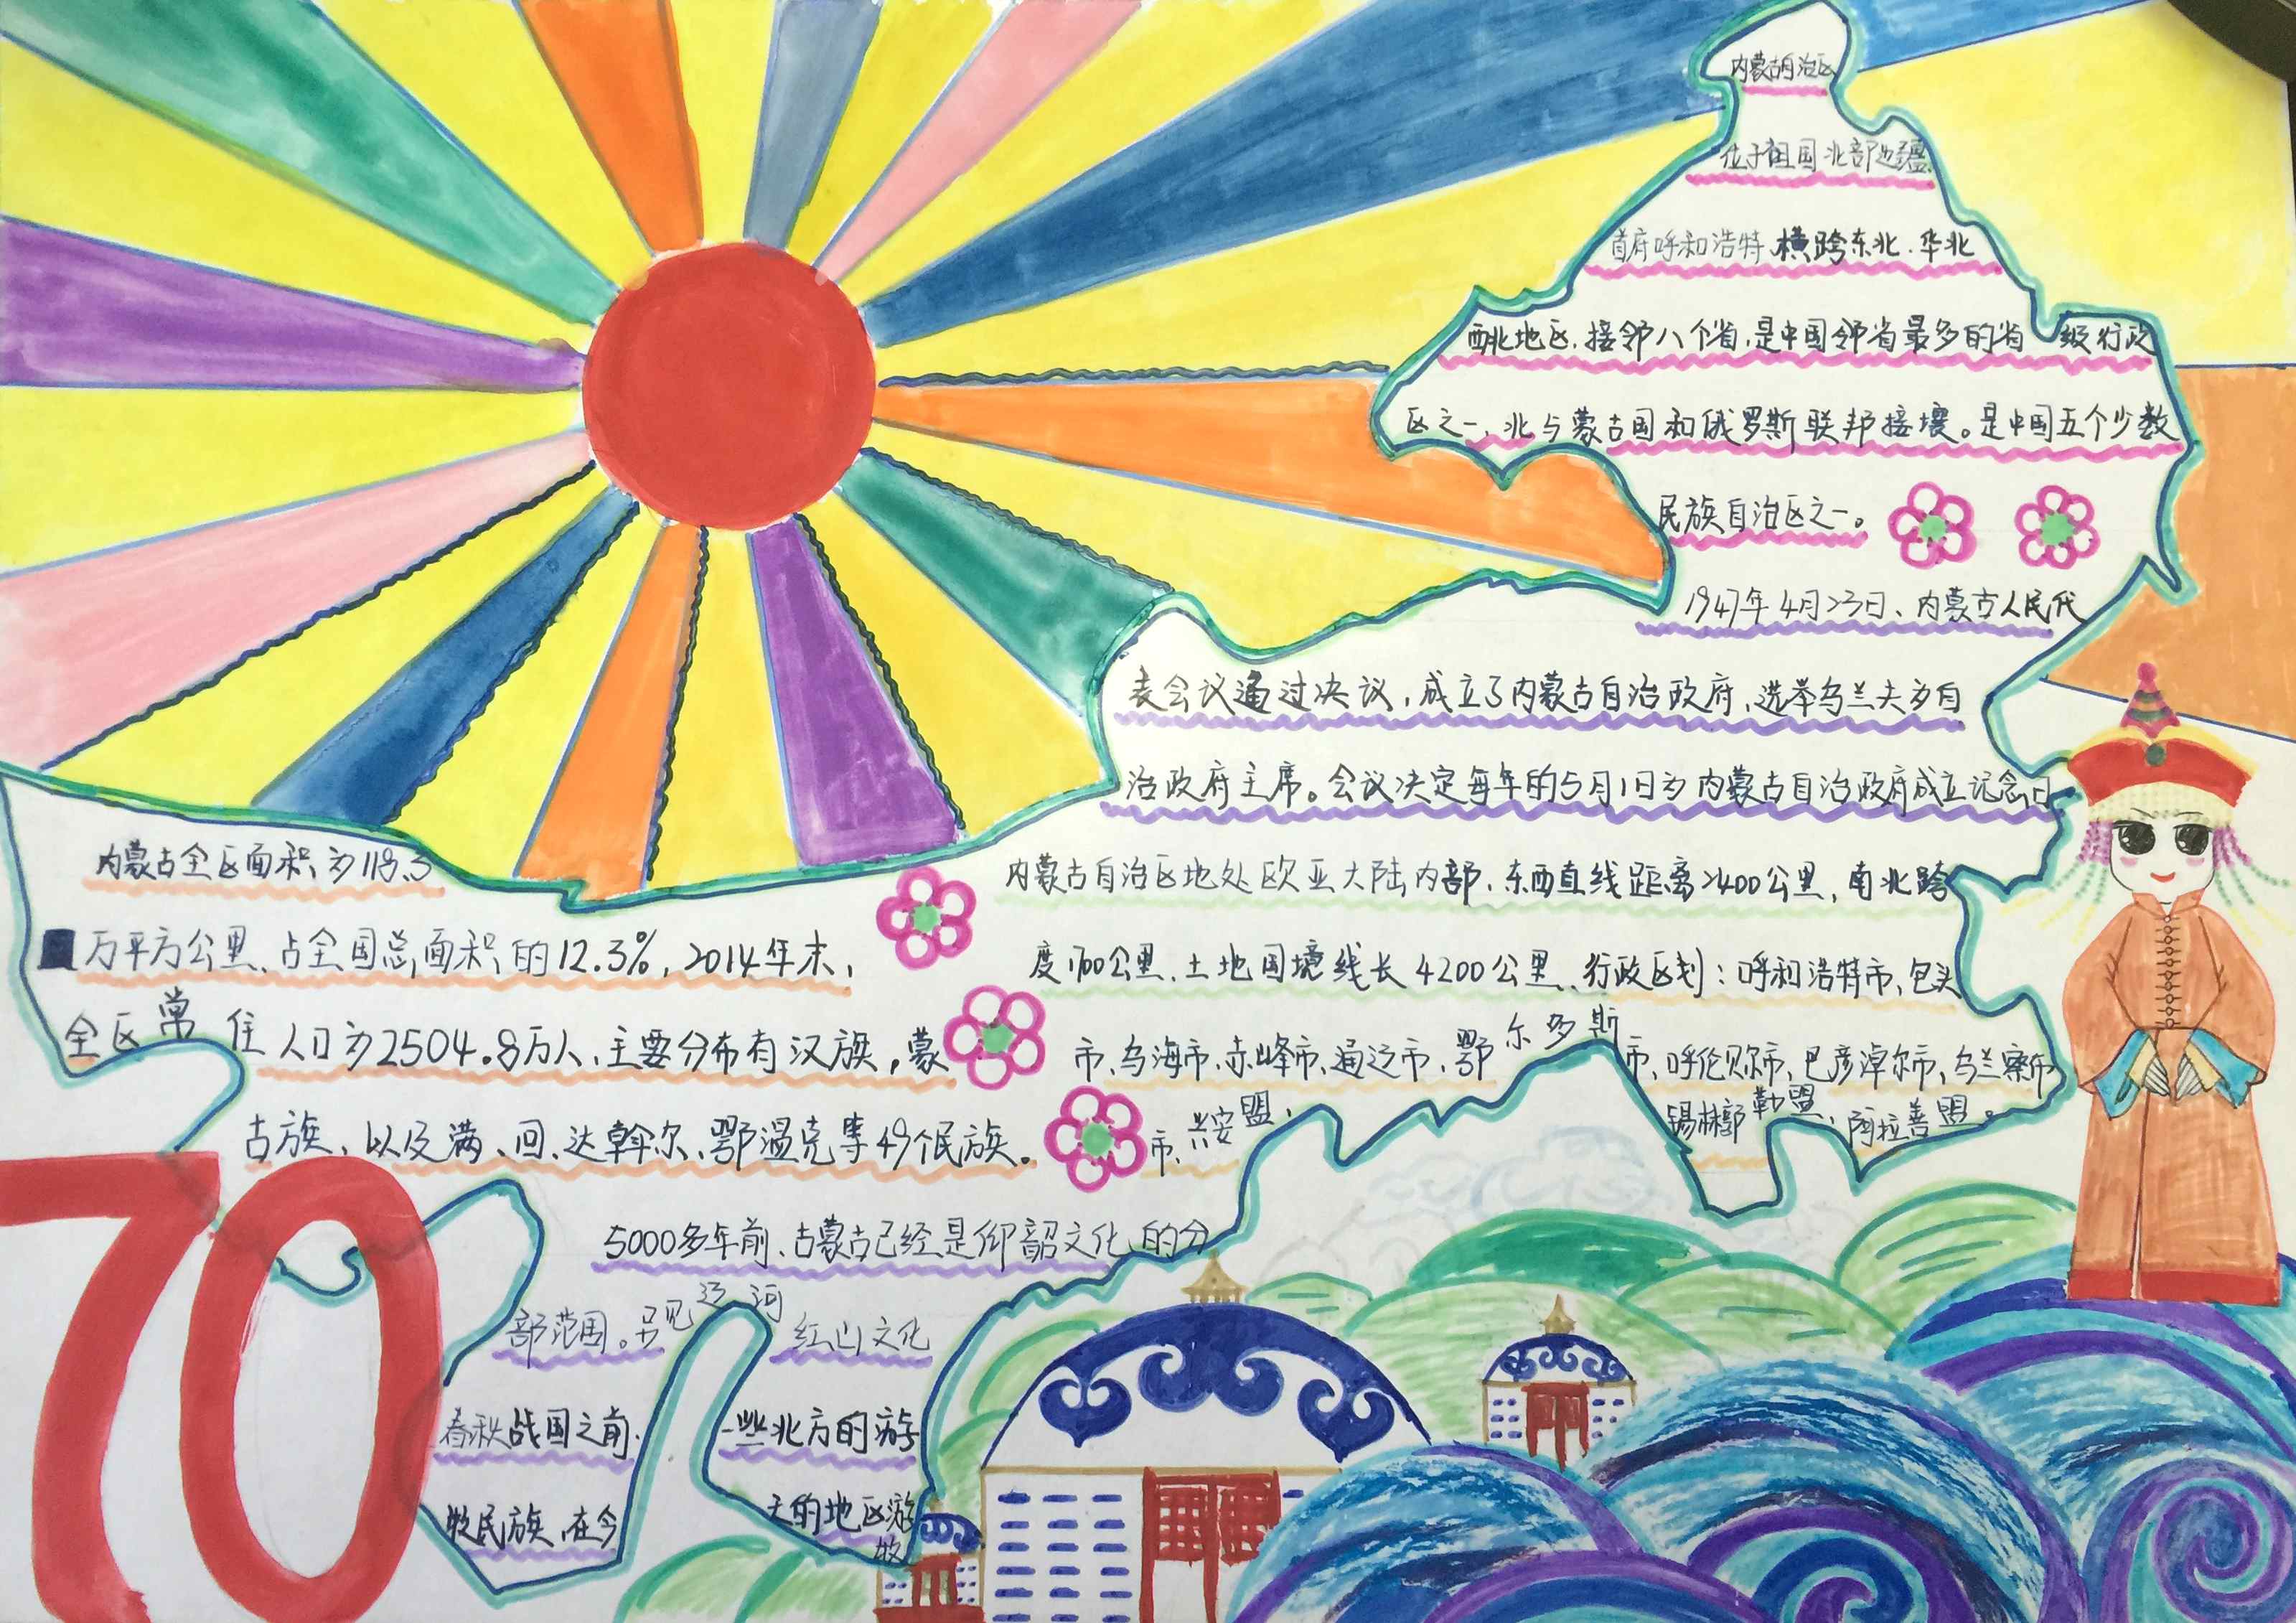 内蒙古自治区
位于祖国北部边疆
首府呼和浩特.横跨东北.华北
西北地区.接邻八个省,是中国邻省最多的省级行政
区之一.北与蒙古国和俄罗斯联邦接壤。是中国五个少数
民族自治区之一。
1947年4月23日、内蒙古人民代
表会议通过决议,成立了内蒙古自治政府、选举乌兰夫为自
治政府主席。会议决定每年的5月1日为内蒙古自治政府成立记念日
内蒙古自治区地处欧亚大陆内部.东西直线距离2400公里,南北跨
度1700公里.土地国境线长4200公里.行政区划:呼和浩特市、包头
市、乌海市、赤峰市、通辽市、鄂尔多斯市、呼伦贝尔市、巴彦淖尔市、乌兰察布
市、兴安盟、锡林郭勒盟、阿拉善盟。
内蒙古全区面积为118.3
万平方公里、占全国总面积的12.3%,2014年末,
全区常住人口为2504.8万人、主要分布有汉族,蒙
古族、以及满、回、达斡尔、鄂温克等49个民族。
5000多年前、古蒙古已经是仰韶文化的分
部范围。另见辽河红山文化
春秋战国之前.一些北方的游
牧民族,在今天的地区游
牧
70